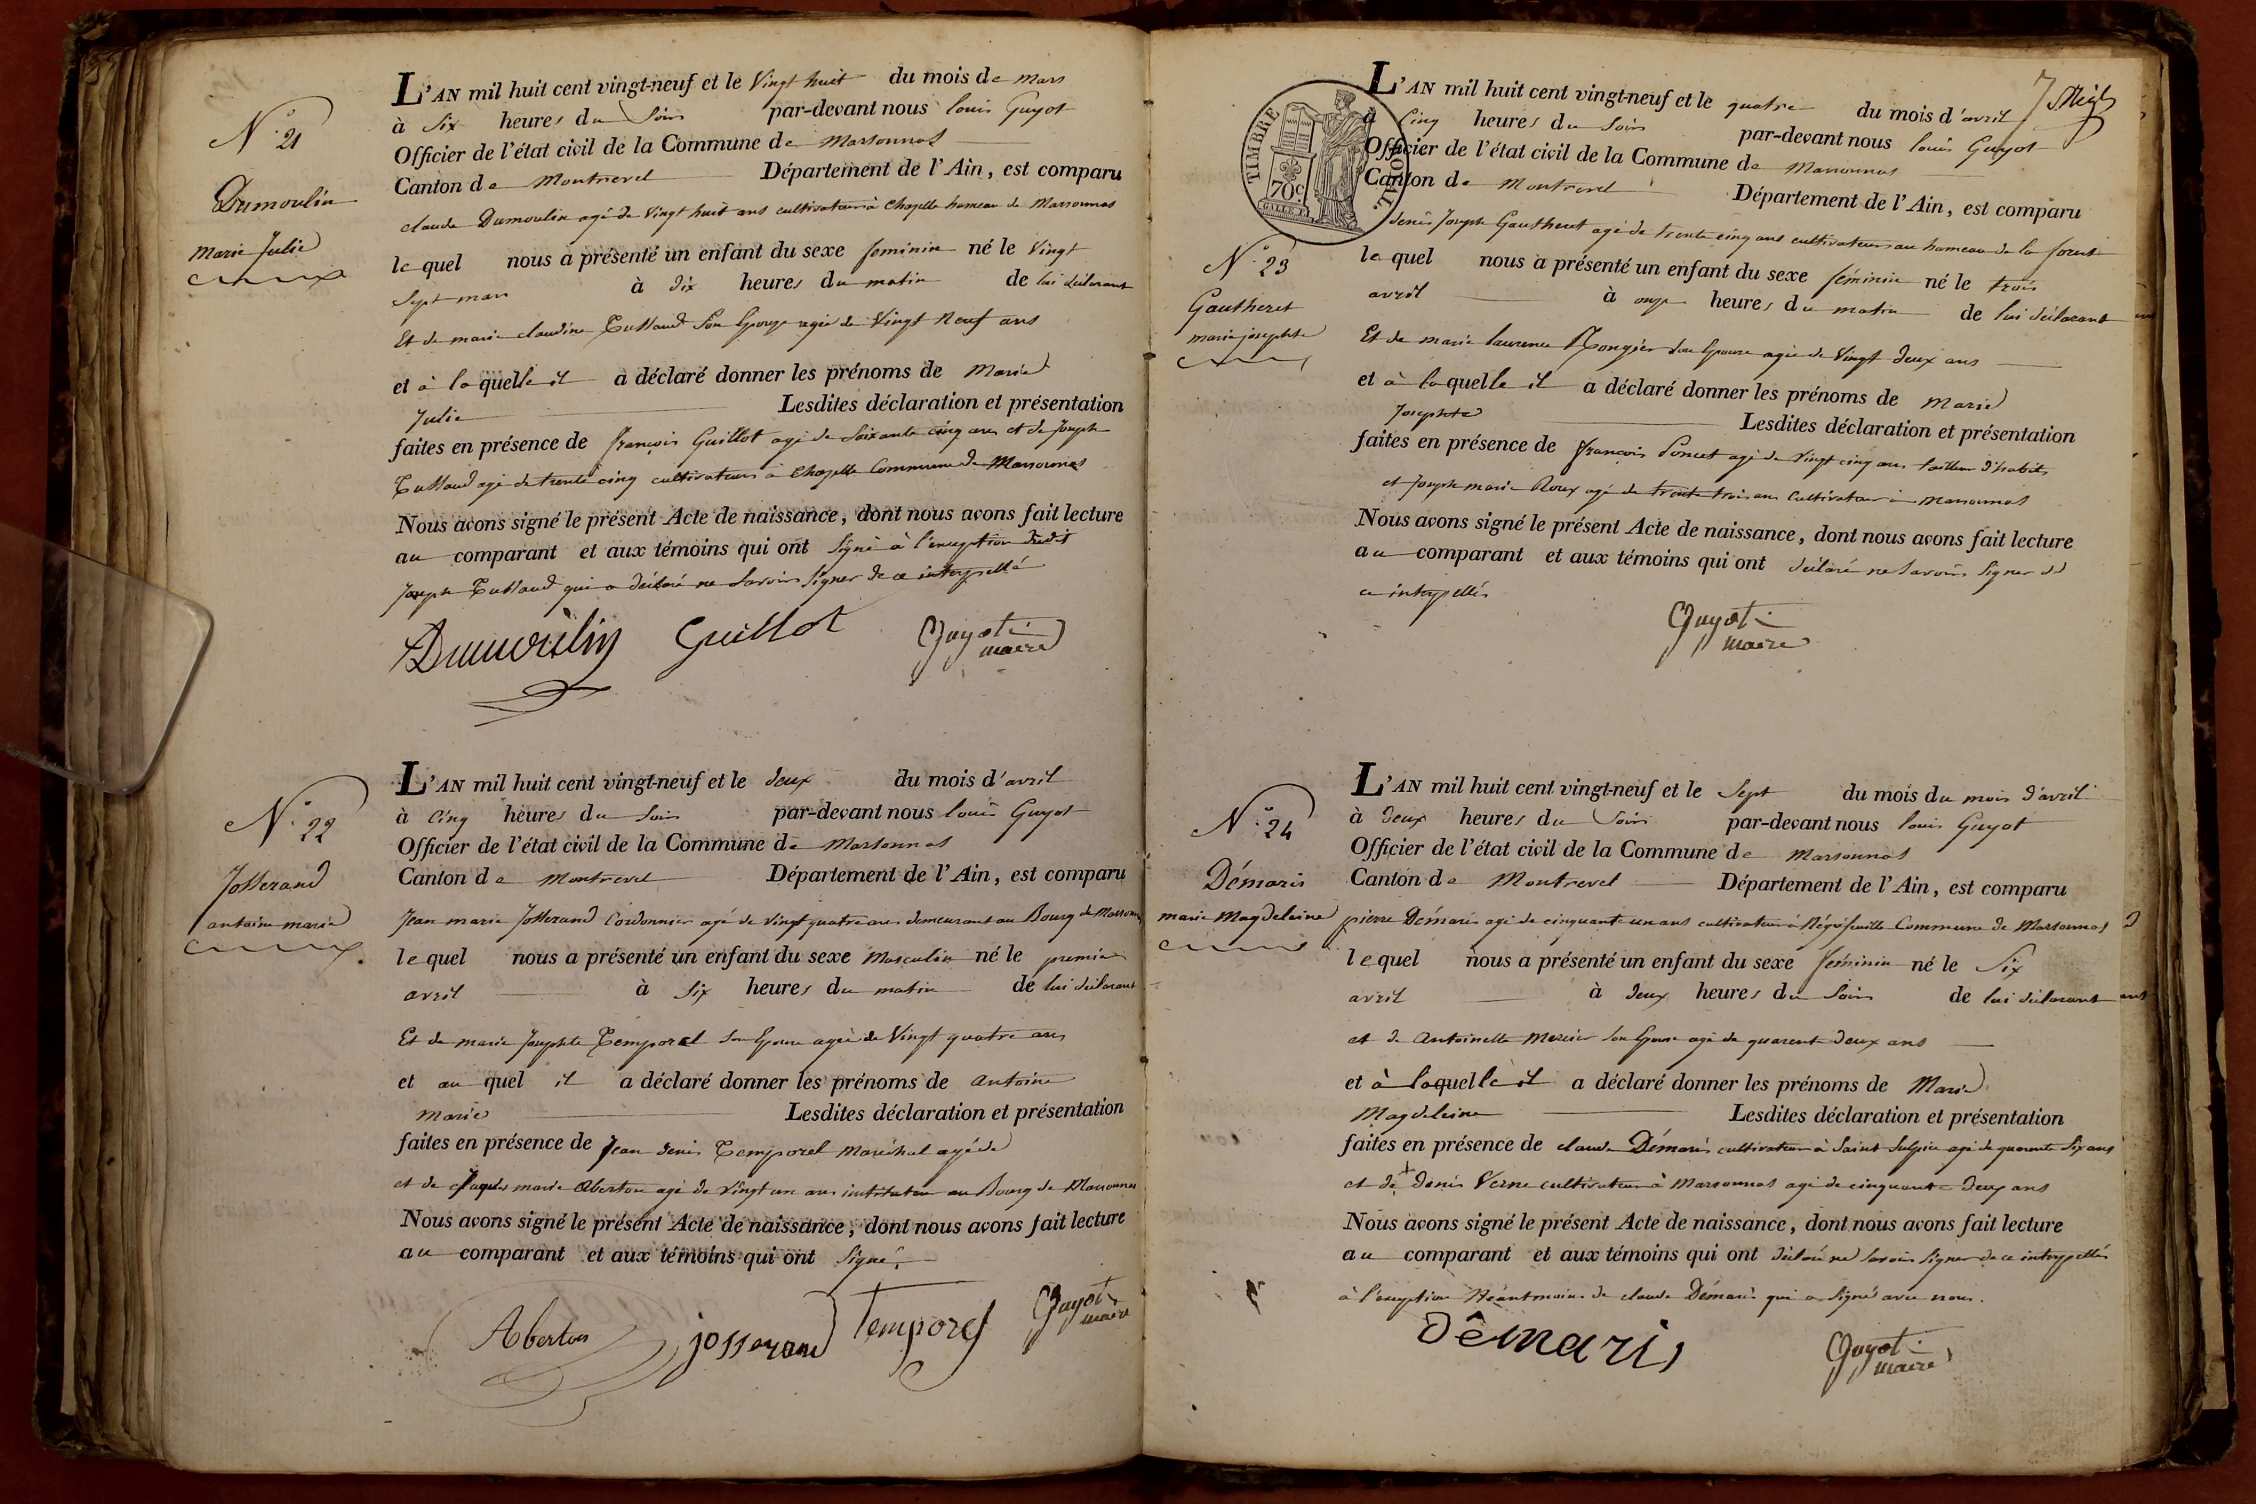 N° 21
Dumoulin
Marie Julie
L'AN mil huit cent vingt-neuf et le Vingt huit du mois de mars
à Six heures du Soir par-devant nous louis Guyot
Officier de l'état civil de la Commune de Marsonnas
Canton de Montrevel Département de l'Ain, est comparu
claude Dumoulin agé de Vingt huit ans cultivateur à Chapelle hameau de Marsonnas
lequel nous a présenté un enfant du sexe feminin né le Vingt
Sept mars à dix heures du matin de lui déclarant
Et de marie claudine Tussaud Son Epouse agée de Vingt Neuf ans
et à laquelle il a déclaré donner les prénoms de Marie
Julie Lesdites déclaration et présentation
faites en présence de françois Guillot agé de Soixante cinq ans et de Joseph
Tussaud agé de trente cinq cultivateurs à Chapelle Commune de Marsonnas
Nous avons signé le présent Acte de naissance, dont nous avons fait lecture
au comparant et aux témoins qui ont Signé à l'exception dudit
Joseph Tussaud qui a déclaré ne Savoir Signer de ce interpellé
Dumoulin Guillot Guyot
maire
N° 22
Josserand
antoine marie
L'AN mil huit cent vingt-neuf et le deux du mois d'avril
à Cinq heures du Soir par-devant nous louis Guyot
Officier de l'état civil de la Commune de Marsonnas
Canton de Montrevel Département de l'Ain, est comparu
Jean marie Josserand Cordonnier agé de Vingt quatre ans demeurant au Bourg de Marsonnas
lequel nous a présenté un enfant du sexe Masculin né le premier
avril à Six heures du matin de lui déclarant
Et de marie Josephte Temporel Son Epouse agée de Vingt quatre ans
et au quel il a déclaré donner les prénoms de antoine
Marie Lesdites déclaration et présentation
faites en présence de Jean denis Temporel Maréchal agé de
et de Jaques marie Aberton agé de Vingt un ans instituteur au Bourg de Marsonnas
Nous avons signé le présent Acte de naissance, dont nous avons fait lecture
au comparant et aux témoins qui ont Signé
Aberton josserand Temporel Guyot
maire
TIMBRE ROYAL
70c
L'AN mil huit cent vingt-neuf et le quatre du mois d'avril
à Cinq heures du Soir par-devant nous louis Guyot
Officier de l'état civil de la Commune de Marsonnas
Canton de Montrevel Département de l'Ain, est comparu
denis Joseph Gautheret agé de trente cinq ans cultivateur au hameau de la forest
N° 23
Gautheret
marie josephte
lequel nous a présenté un enfant du sexe féminin né le trois
avril à onze heures du matin de lui déclarant
Et de marie laurence Rongier Son Epouse agée de Vingt deux ans
et à laquelle il a déclaré donner les prénoms de Marie
Josephte Lesdites déclaration et présentation
faites en présence de françois Poncet agé de Vingt cinq ans tailleur d'habits
et Joseph marie Roux agé de trente trois ans Cultivateur à Marsonnas
Nous avons signé le présent Acte de naissance, dont nous avons fait lecture
au comparant et aux témoins qui ont déclaré ne Savoir Signer de
ce interpellés
Guyot
maire
N° 24
Démaris
marie Magdeleine
L'AN mil huit cent vingt-neuf et le Sept du mois du mois d'avril
à deux heures du Soir par-devant nous louis Guyot
Officier de l'état civil de la Commune de Marsonnas
Canton de Montrevel Département de l'Ain, est comparu
pierre Démaris agé de cinquante un ans cultivateur à Négrefeuille Commune de Marsonnas
lequel nous a présenté un enfant du sexe féminin né le Six
avril à deux heures du Soir de lui déclarant
et de Antoinette Mercier Son Epouse agé de quarente deux ans
et à laquelle il a déclaré donner les prénoms de Marie
Magdeleine Lesdites déclaration et présentation
faites en présence de claude Démaris cultivateur à Saint Sulpice agé de quarente Six ans
et de denis Verne cultivateur à Marsonnas agé de cinquante deux ans
Nous avons signé le présent Acte de naissance, dont nous avons fait lecture
au comparant et aux témoins qui ont déclaré ne Savoir Signer de ce interpellés
à l'exception Néantmoins de claude Démaris qui a Signé avec nous.
Dêmaris Guyot
maire